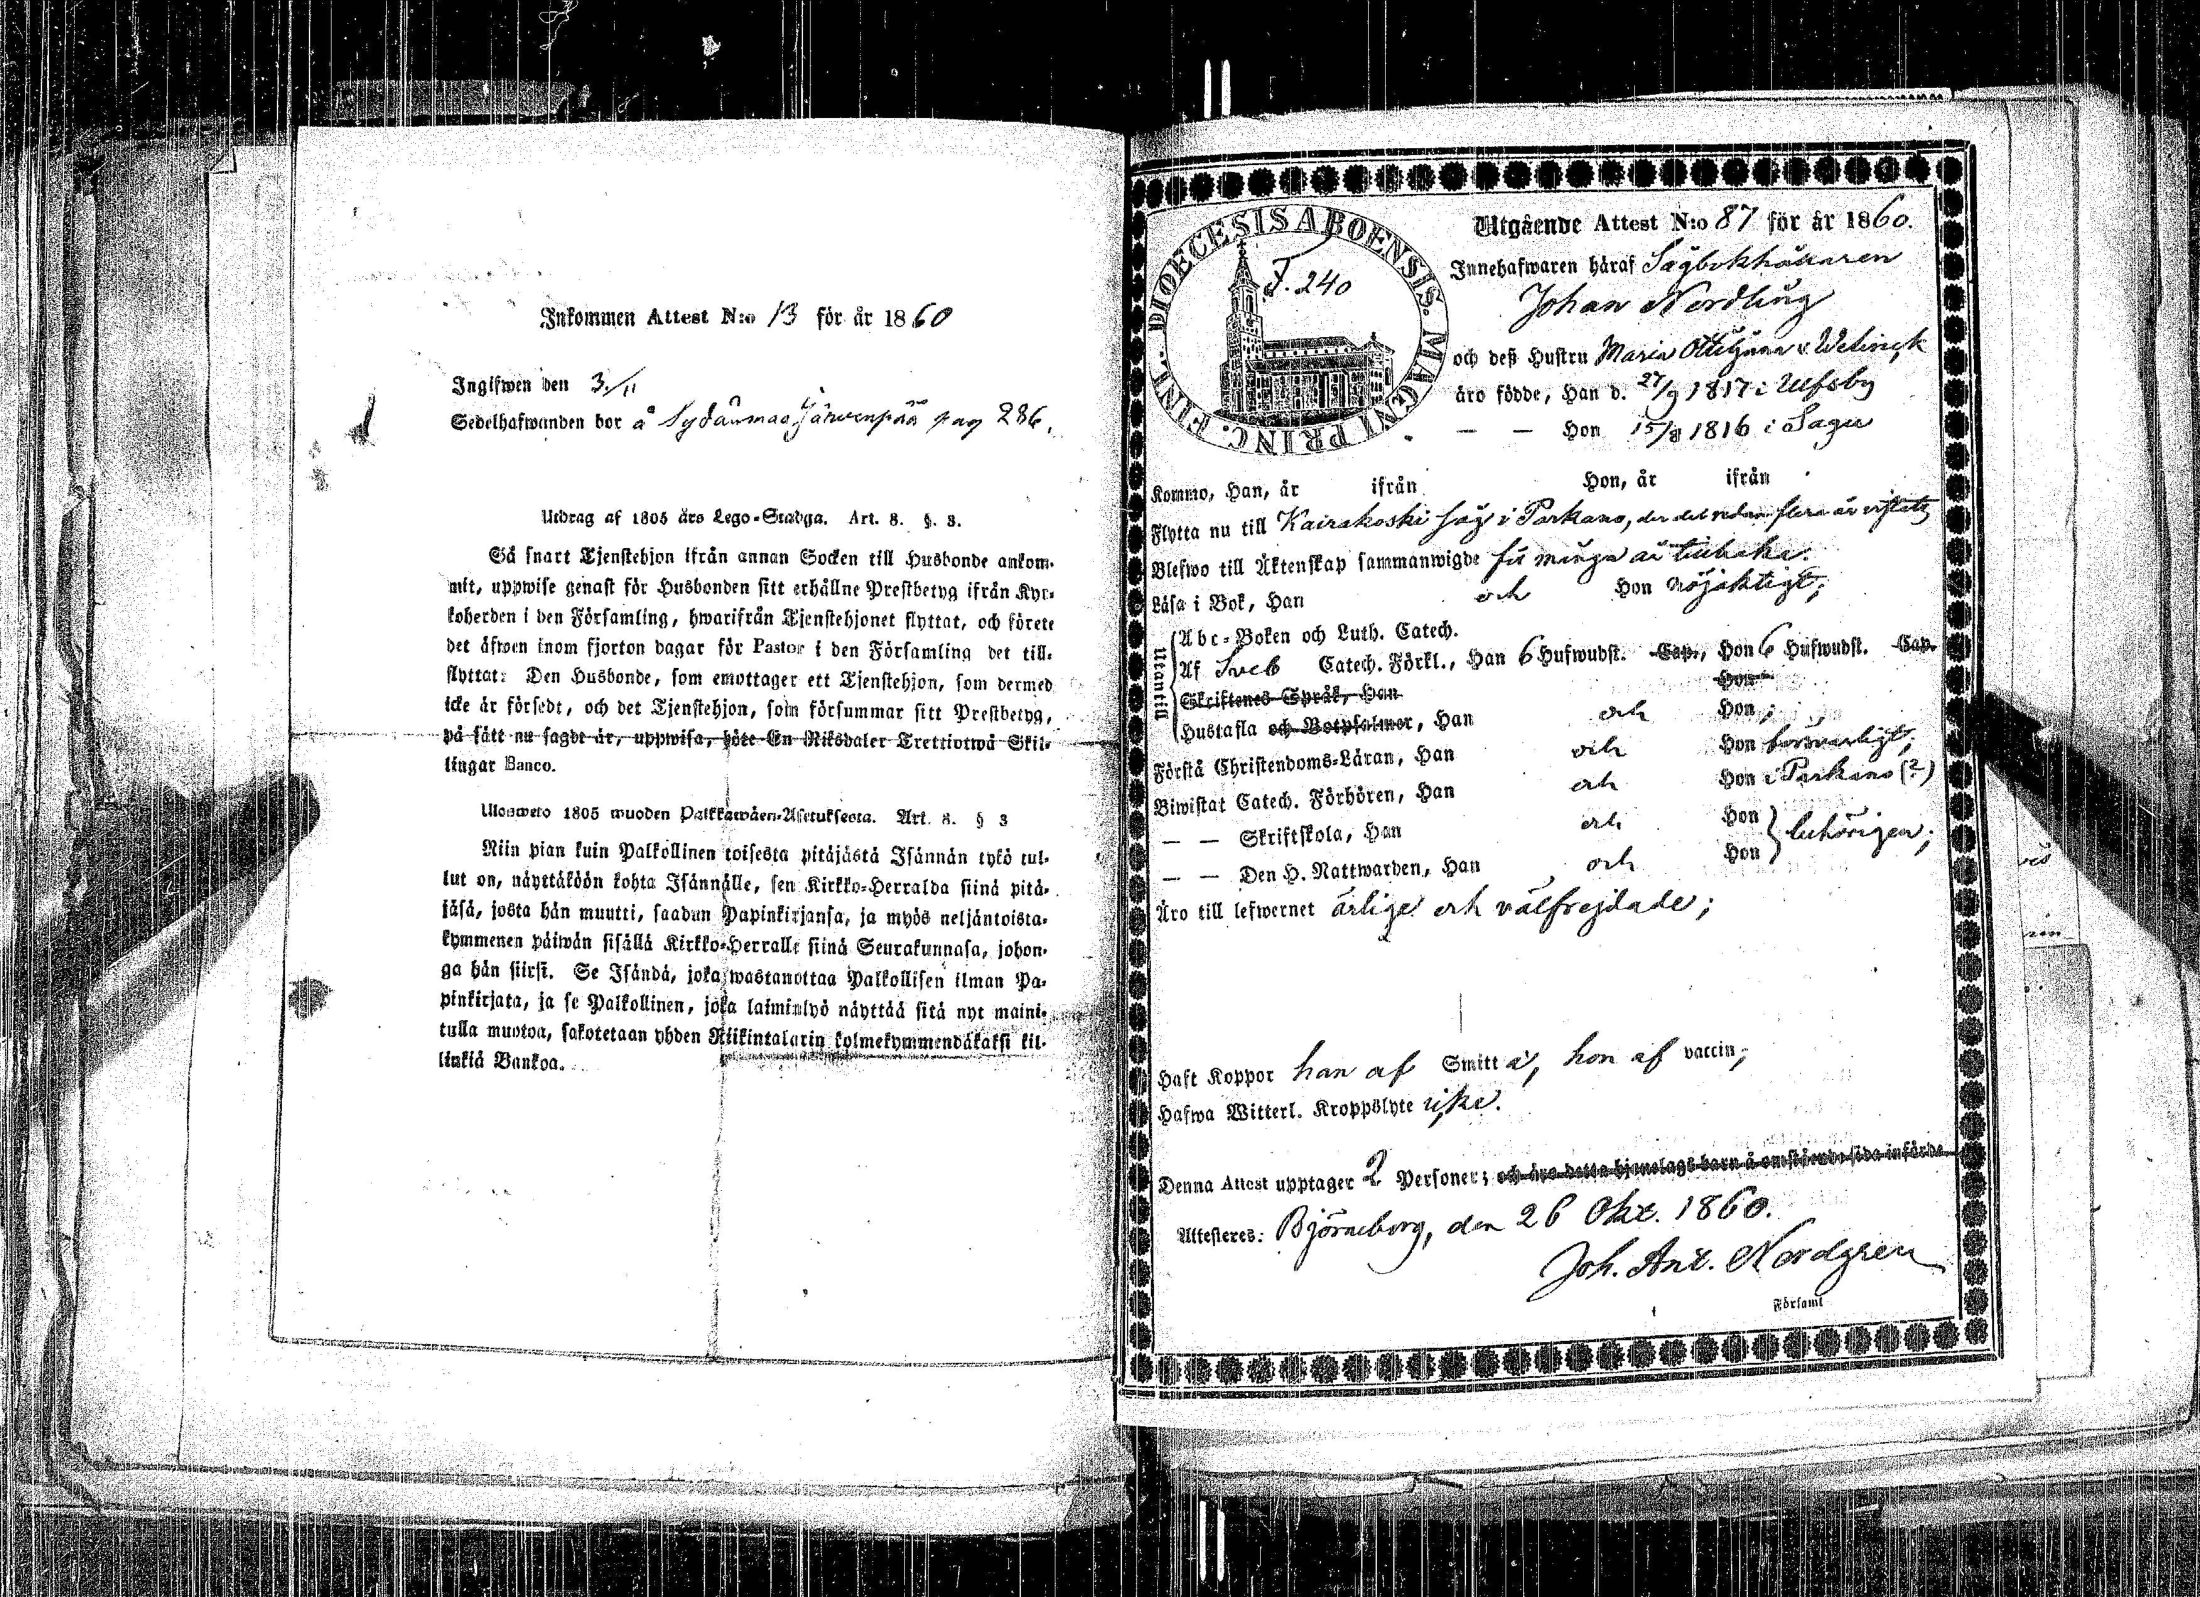 Inkommen Attest N:o 13 för år 1860
Ingifwen den 3./11
Sedelhafwanden bor å Sydänmaa Järvenpää pag 286.
Utdrag af 1805 års Lego-Stadga. Art. 8. §. 3.
Så snart Tjenstehjon ifrån annan Socken till Husbonde ankom-
mit, uppwise genast för Husbonden sitt erhållne Prestbetyg ifrån Kyr-
koherden i den Församling, hwarifrån Tjenstehjonet flyttat, och förete
det äfwen inom fjorton dagar för Pastor i den Församling det till-
flyttat: Den Husbonde, som emottager ett Tjenstehjon, som dermed
icke är försedt, och det Tjenstehjon, som försummar sitt Prestbetyg,
på sätt nu sagdt är, uppwisa, böte En Riksdaler Trettiotwå Skil-
lingar Banco.
Ulosweto 1805 wuoden Palkkawäen-Asetuksesta. Art. 8. § 3
Niin pian kuin Palkollinen toisesta pitäjästä Isännän tykö tul-
lut on, näyttäköön kohta Isännälle, sen Kirkko-Herralda siinä pitä-
jäsä, josta hän muutti, saadun Papinkirjansa, ja myös neljäntoista-
kymmenen päiwän sisällä Kirkko-Herralle siinä Seurakunnasa, johon-
ga hän siirsi. Se Isändä, joka wastanottaa Palkollisen ilman Pa-
pinkirjata, ja se Palkollinen, joka laiminlyö näyttää sitä nyt maini-
tulla muotoa, sakotetaan yhden Riikintalarin kolmekymmendäkaksi kil-
linkiä Bankoa.
DIOECESIS ABOENSIS. MAGNI PRINC. FINL.
F. 240
Utgående Attest N:o 87 för år 1860.
Innehafwaren häraf Sågbokhållaren
Johan Nordling
och deß Hustru Maria
äro födde, Han d. 27/9 1817 i Ulfsby
— — Hon 15/8 1816 i Sagu
Kommo, Han, år ifrån Hon, år ifrån
Flytta nu till Kairakoski såg i Parkano, der det redan flera år vistats
Blefwo till Äktenskap sammanwigde för många år tillbaka.
Läsa i Bok, Han och Hon nöjaktigt;
Utantill
Abc-Boken och Luth. Catech.
Af Sveb Catech. Förkl., Han 6 Hufwudst. Cap., Hon 6 Hufwudst. Cap.
Skriftenes Språk, Han Hon
Hustafla och Botpsalmer, Han och Hon;
Förstå Christendoms-Läran, Han och Hon försvarligt;
Biwistat Catech. Förhören, Han och Hon i Parkano (?)
— — Skriftskola, Han och Hon
— — Den H. Nattwarden, Han och Hon behörigen;
Äro till lefwernet ärlige och välfrejdade;
Haft Koppor han af Smitta, hon af vaccin;
Hafwa Witterl. Kroppslyte icke.
Denna Attest upptager 2 Personer; och äro detta hjonelags barn å omstående sida införde.
Attesteres: Björneborg, den 26 Okt. 1860.
Joh. Ant. Nordgren
Församl